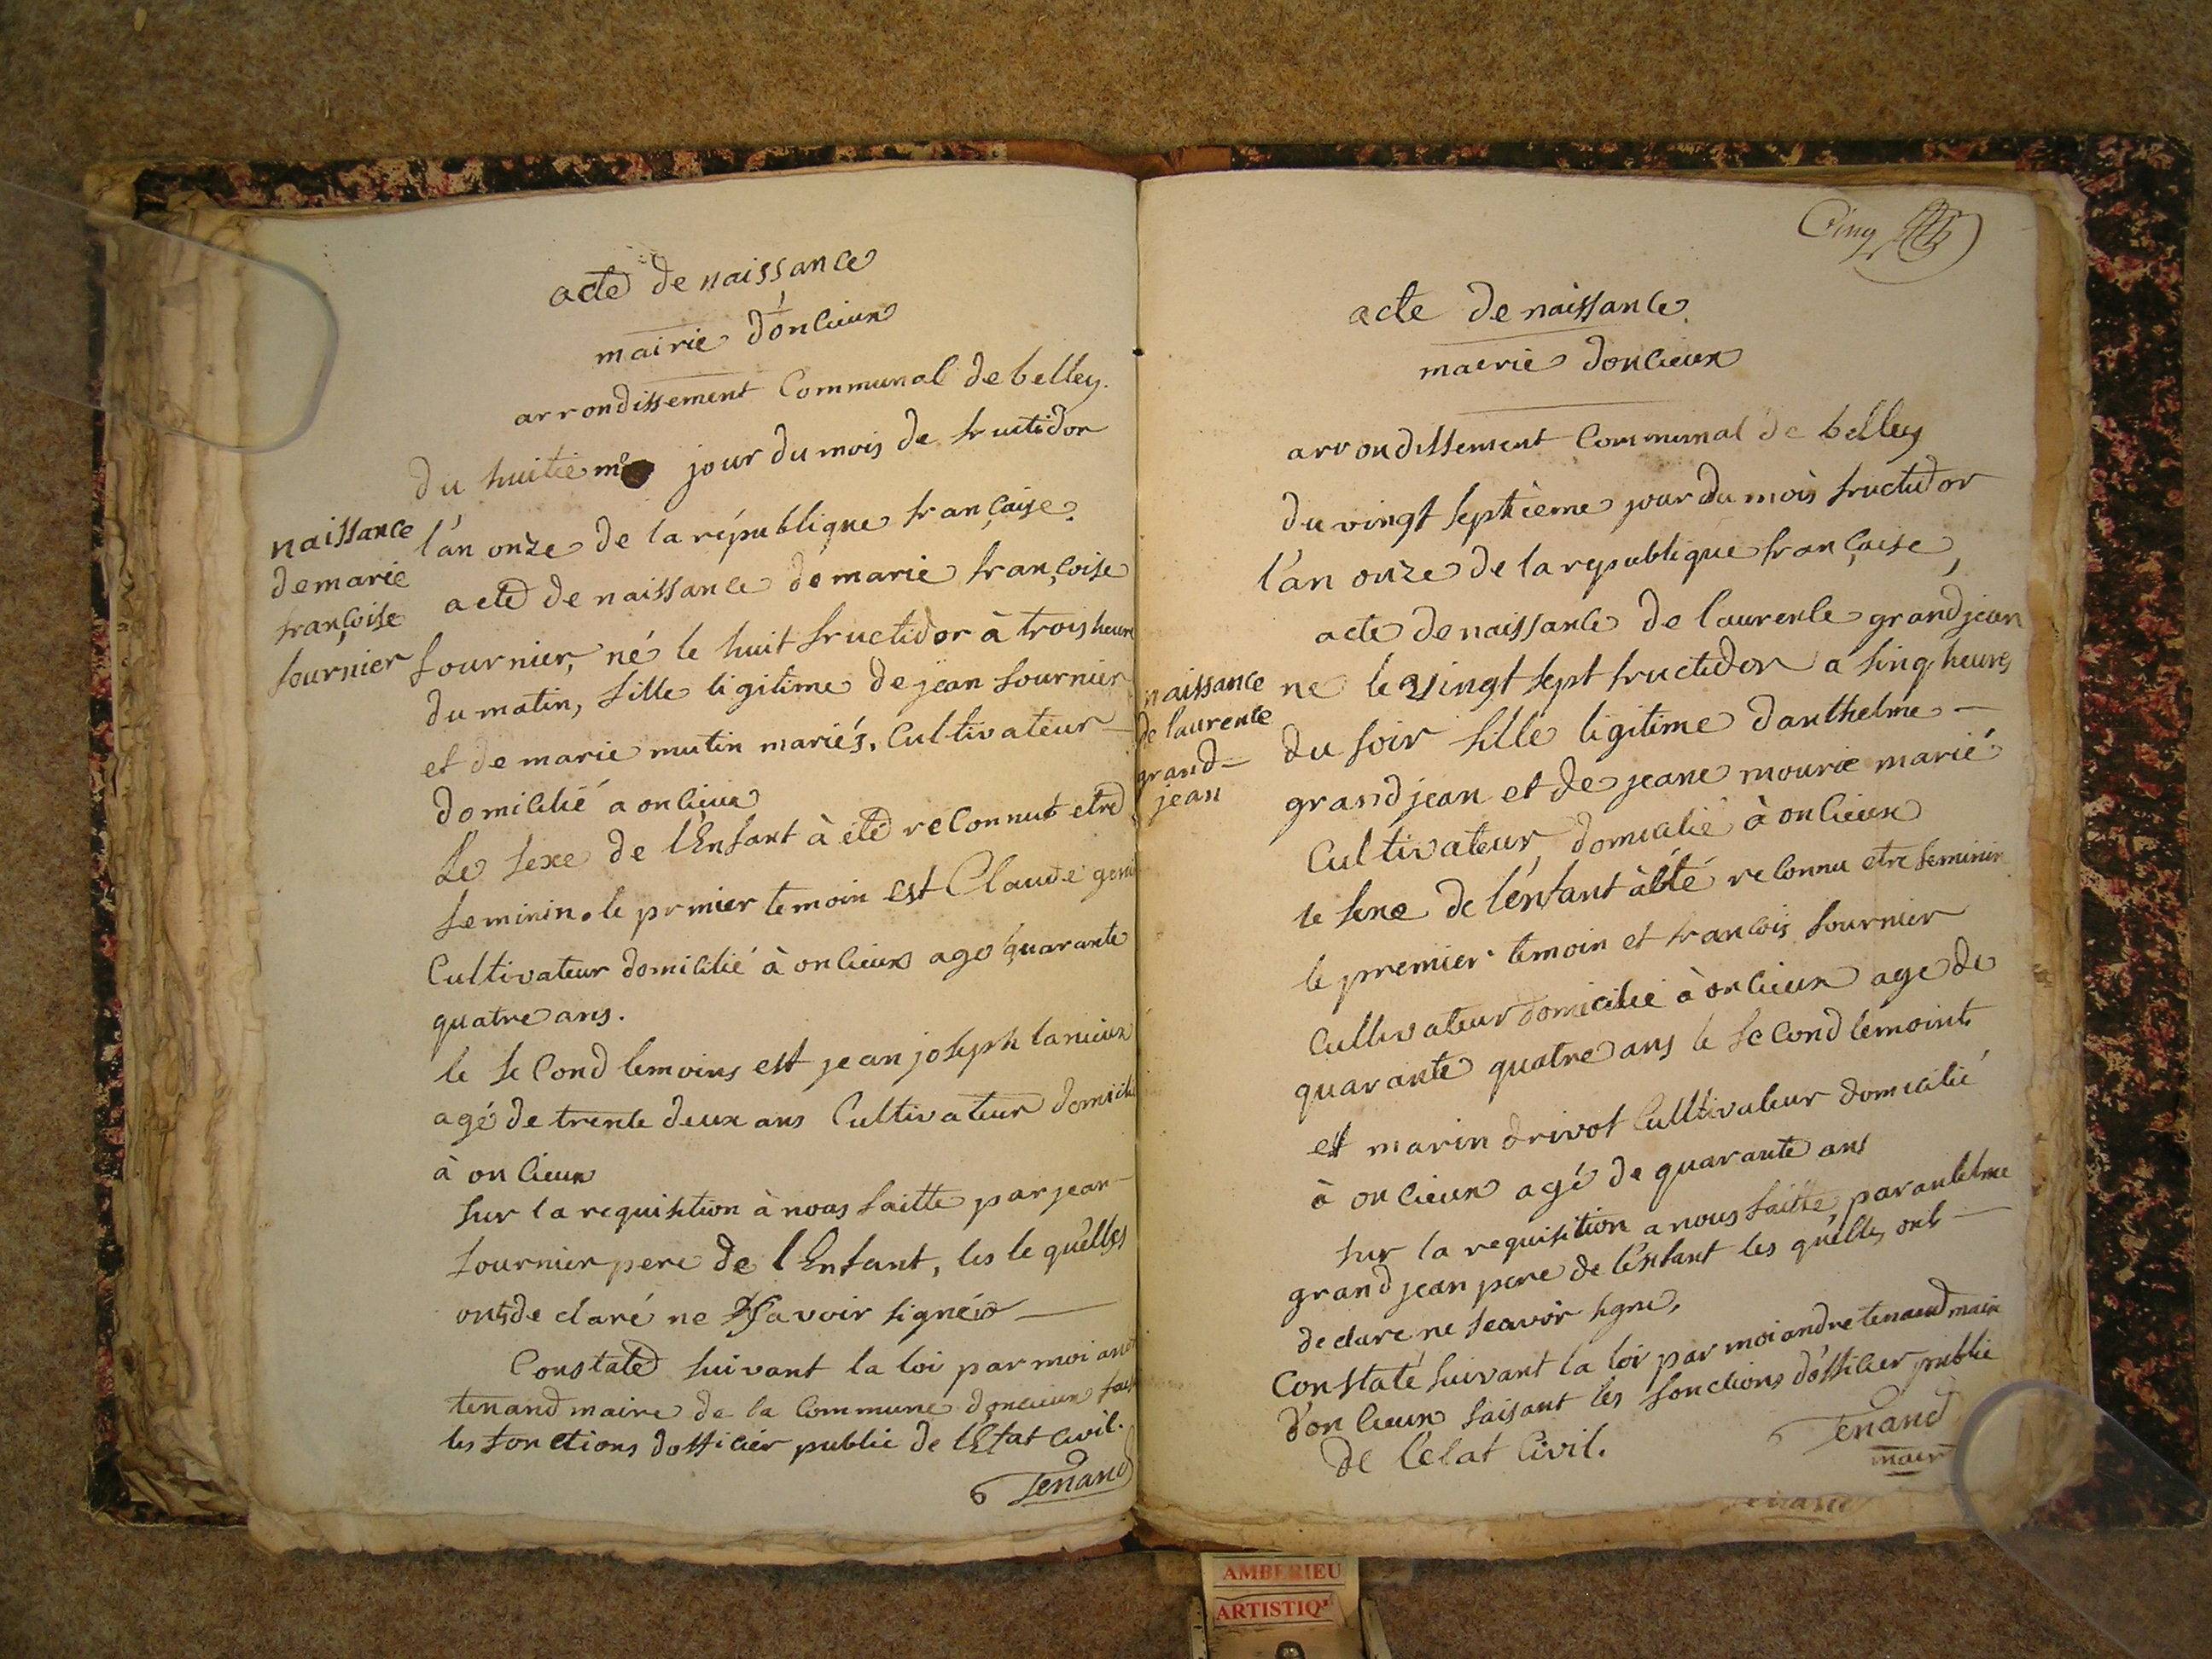 acte de naissance
mairie d'onlieux
arrondissement Communal de belley.
du huitieme jour du mois de fructidor
l'an onze de la république française.
naissance
de marie
françoise
fournier
acte de naissance de marie françoise
fournier, né le huit fructidor à trois heure
du matin, fille ligitime de jean fournier
et de marie mutin mariés. Cultivateur —
domicilié a onlieux
Le sexe de l'Enfant à été reconnut etre
feminin. le prmier temoin est Claude
Cultivateur domicilié à onlieux age quarante
quatre ans.
le second temoins est jean joseph tanieux
agé de trente deux ans Cultivateur domicilié
à onlieux
sur la requisition à nous faitte par jean
fournier pere de l'Enfant, les lequelles
ont declaré ne sçavoir signér —
Constaté suivant la loi par moi
tenand maire de la Commune donlieux
les fonctions dofficiér public de l'Etat Civil.
Tenand
Cinq
acte de naissance
maerie donlieux
arrondissement Communal de belley
du vingt septieme jour du mois fructidor
l'an onze de la republique française,
acte de naissance de laurence grandjean
naissance
de laurence
grand-
jean
ne le vingt sept fructidor a sinq heures
du soir fille ligitime danthelme —
grandjean et de jeane mourie marié
Cultivateur domicilié à onlieux
le sexe de l'enfant àété reconnu etre feminin
le premier temoin et françois fournier
Cultivateur domicilié à onlieux age de
quarante quatre ans le second temoint
est marin drivot Cultivateur domicilié
à onlieux agé de quarante ans
sur la requisition a nous faitte par antelme
grandjean pere de l'enfant les quelles ont —
declare ne scavoir signe,
Constaté suivant la loi par moi andre tenand maire
d'onlieux faisant les fonctions d'officier public
de l'etat Civil.
Tenand
maire
AMBERIEU
ARTISTIQ